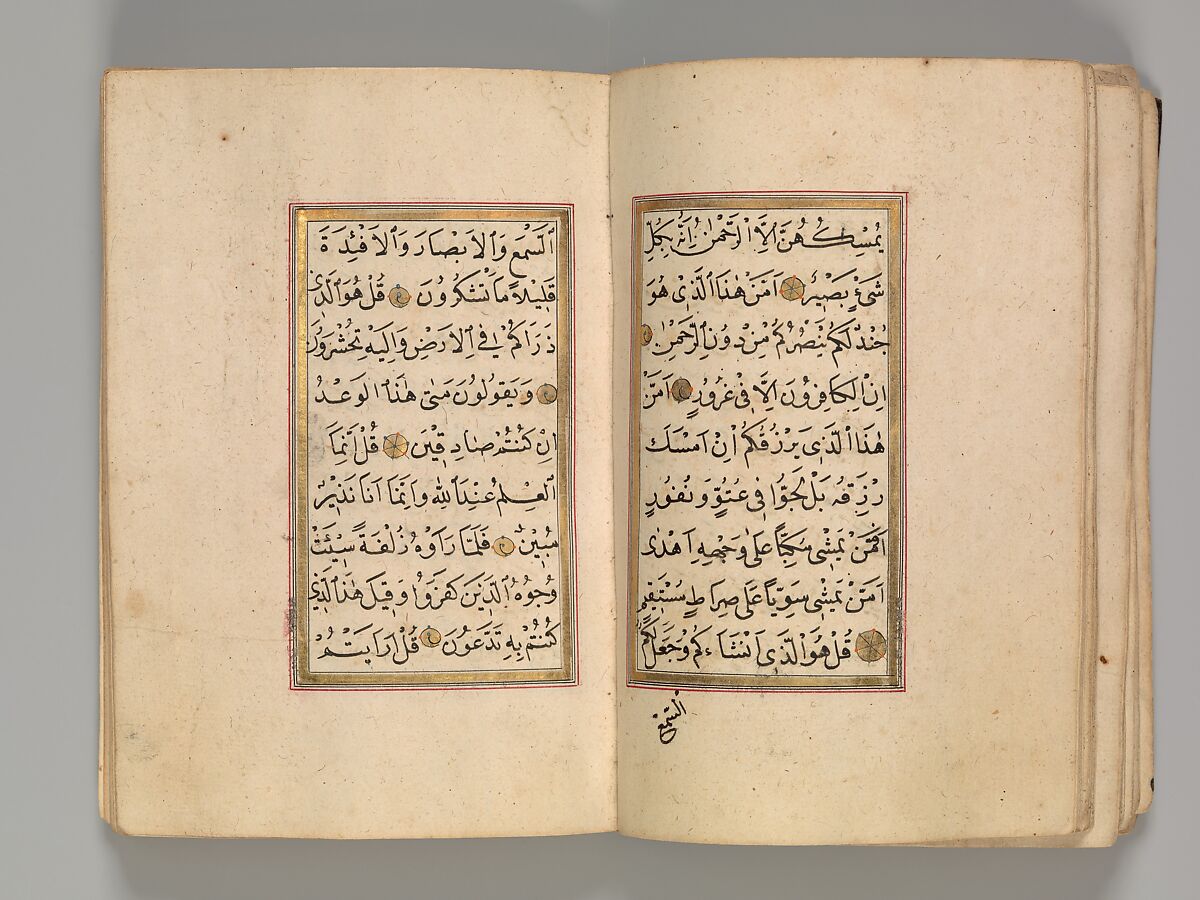 يُمْسِكُهُنَّ اِلَّا الرَّحْمٰنُ اِنَّهُ بِكُلِّ
شَىْءٍ بَصِيرٌ اَمَّنْ هٰذَا الَّذِى هُوَ
جُنْدٌ لَكُمْ يَنْصُرُكُمْ مِنْ دُونِ الرَّحْمٰنِ
اِنِ الْكَافِرُونَ اِلَّا فِى غُرُورٍ اَمَّنْ
هٰذَا الَّذِى يَرْزُقُكُمْ اِنْ اَمْسَكَ
رِزْقَهُ بَلْ لَجُّوا فِى عُتُوٍّ وَنُفُورٍ
اَفَمَنْ يَمْشِى مُكِبًّا عَلٰى وَجْهِهِ اَهْدٰى
اَمَّنْ يَمْشِى سَوِيًّا عَلٰى صِرَاطٍ مُسْتَقِيمٍ
قُلْ هُوَ الَّذِى اَنْشَاَكُمْ وَجَعَلَ لَكُمُ
السَّمْعَ
اَلسَّمْعَ وَالْاَبْصَارَ وَالْاَفْئِدَةَ
قَلِيلًا مَا تَشْكُرُونَ قُلْ هُوَ الَّذِى
ذَرَاَكُمْ فِى الْاَرْضِ وَاِلَيْهِ تُحْشَرُونَ
وَيَقُولُونَ مَتٰى هٰذَا الْوَعْدُ
اِنْ كُنْتُمْ صَادِقِينَ قُلْ اِنَّمَا
الْعِلْمُ عِنْدَ اللّٰهِ وَاِنَّمَا اَنَا نَذِيرٌ
مُبِينٌ فَلَمَّا رَاَوْهُ زُلْفَةً سِيئَتْ
وُجُوهُ الَّذِينَ كَفَرُوا وَقِيلَ هٰذَا الَّذِى
كُنْتُمْ بِهِ تَدَّعُونَ قُلْ اَرَاَيْتُمْ